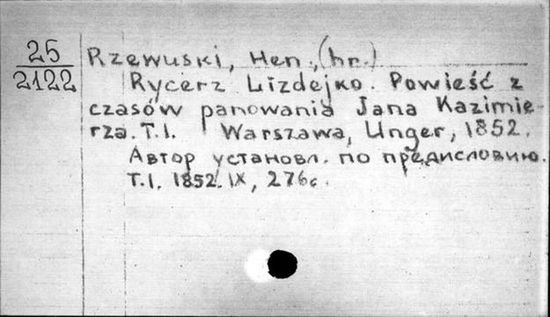 25
2122
Rzewuski, Hen., (hr.)
Rycerz Lizdejko. Powieść z
czasów panowania Jana Kazimie-
rza. T.I. Warszawa, Unger, 1852.
Автор установл. по предисловию.
T.I. 1852. IX, 276с.